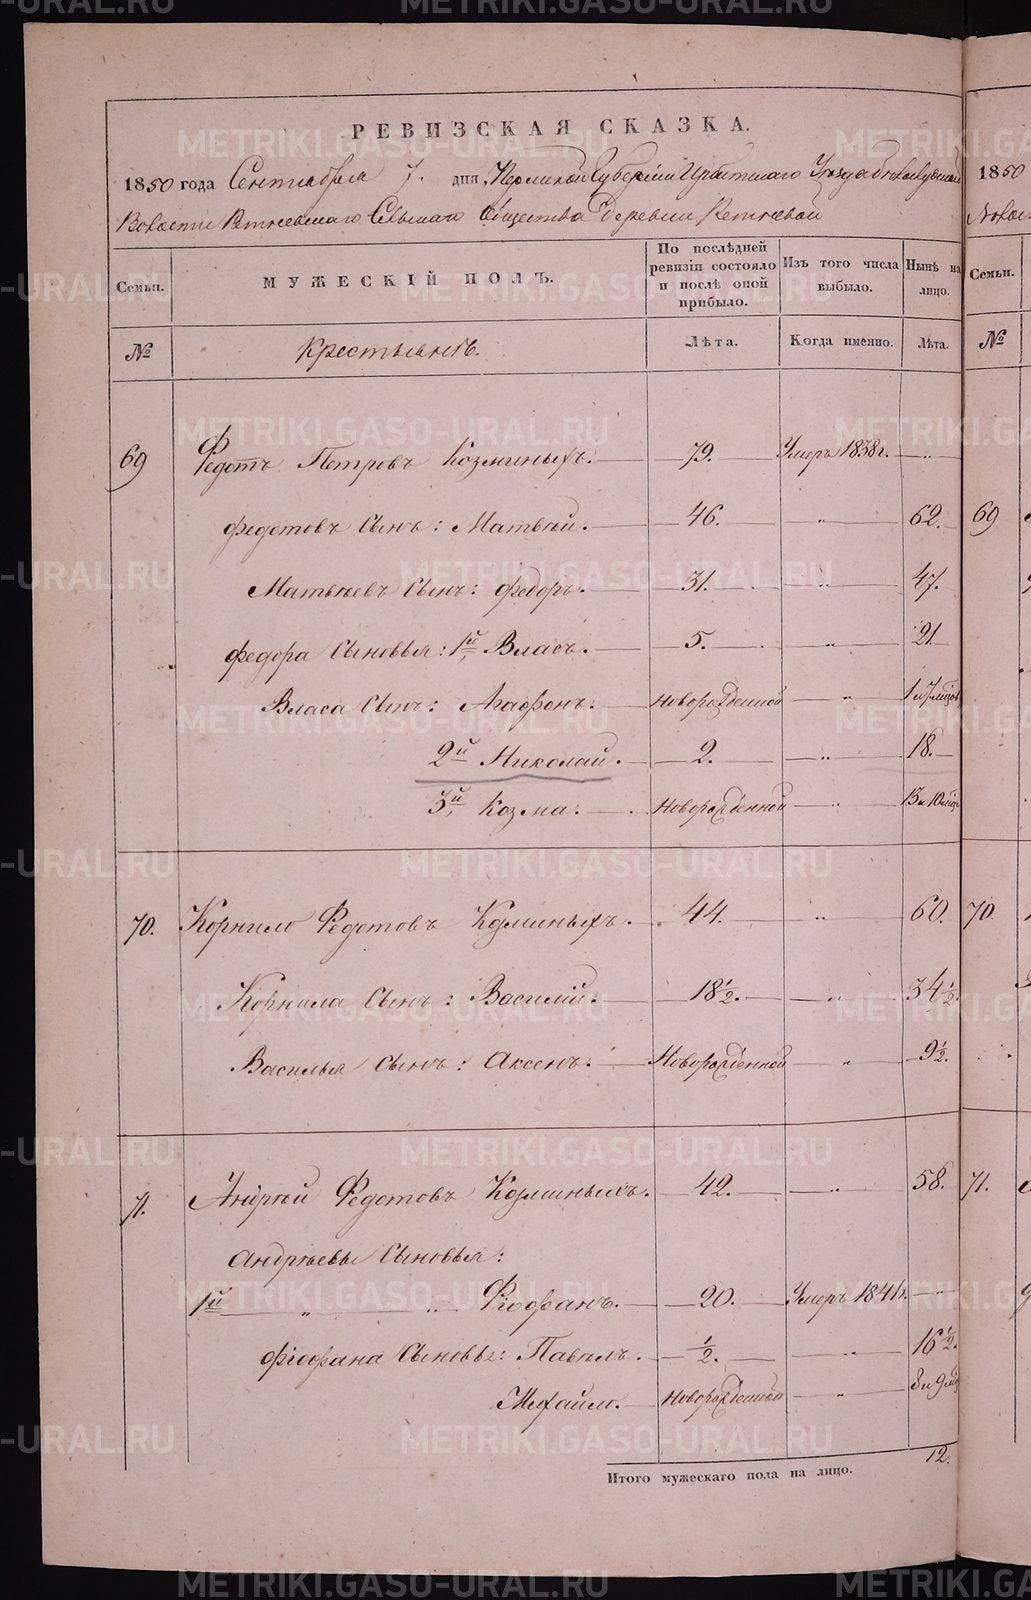 РЕВИЗСКАЯ СКАЗКА.
1850 года Сентября 7. дня, Пермской Губернии Ирбитскаго Уезда
Волости Ретневскаго Сельскаго Общества Деревни Ретневой
Семьи. МУЖЕСКІЙ ПОЛЪ. По послѣдней ревизіи состояло и послѣ оной прибыло. Изъ того числа выбыло. Нынѣ на лицо.
№ Крестьянъ. Лѣта. Когда именно. Лѣта.
69 Федотъ Петровъ Козминыхъ. 79. Умеръ 1838г. „
Федотовъ Сынъ: Матвѣй. 46. „ 62.
Матвѣевъ Сынъ: Федоръ. 31. „ 47.
Федора Сыновья: 1й Власъ. 5. „ 21
Власа Сынъ: Агафонъ. Новорожденной „ 1 и 7 мѣсцов
2й Николай. 2. „ 18.
3й Козма: Новорожденной „ 13 и 10 мѣс
70. Корнило Федотовъ Козминыхъ. 44. „ 60.
Корнила Сынъ: Василій. 18 1/2. „ 34 1/2.
Василья Сынъ: Аксенъ. Новорожденной „ 9 1/2.
71. Андрѣй Федотовъ Козминыхъ. 42. „ 58.
Андрѣевы Сыновья:
1й „ „ Фіофанъ. 20. Умеръ 1841г. „
Фіофана Сыновья: Павелъ. 1/2. „ 16 1/2.
Михайло. Новорожденный „ 8 и 9 мѣс
Итого мужескаго пола на лицо. 12.
1850
Семьи.
№
69
70.
71.
METRIKI.GASO-URAL.RU